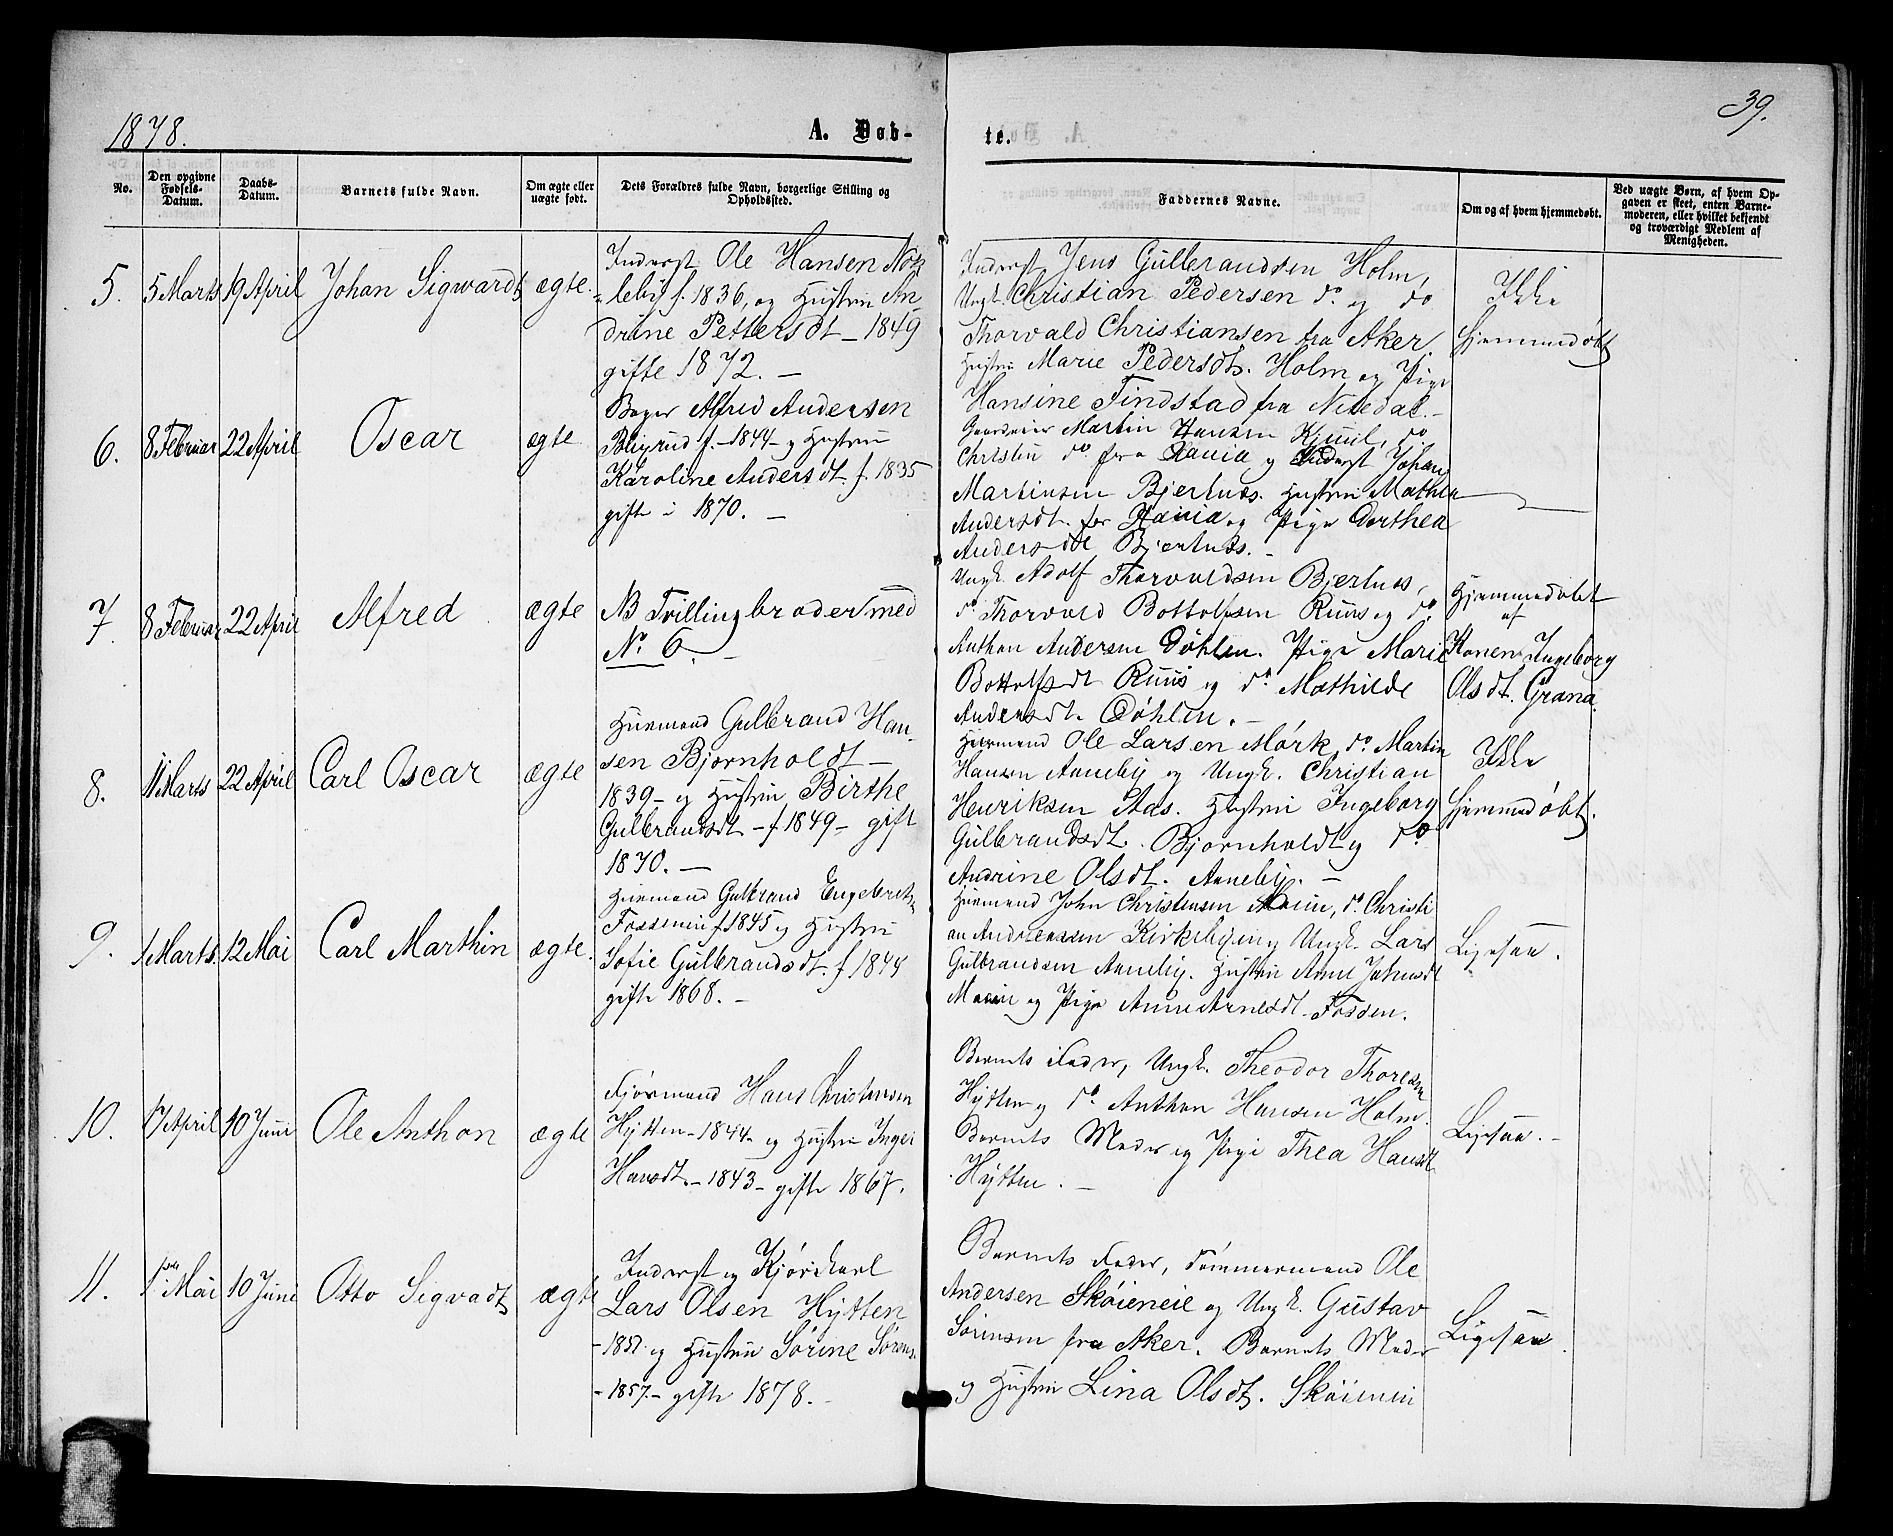 1878.
A. Døb-
te.
39.
No.
Den opgivne Fødsels-Datum.
Daabs-Datum.
Barnets fulde Navn.
Om ægte eller uægte født.
Dets Forældres fulde Navn, borgerlige Stilling og Opholdssted.
Faddernes Navne.
Om og af hvem hjemmedøbt.
Ved uægte Børn, af hvem Op-
gaven er skeet, enten Barne-
moderen, eller hvilket bekjendt
og troværdigt Medlem af
Menigheden.
5.
5 Marts
19 April
Johan Sigwardt
ægte.
Inderst Ole Hansen
leby f. 1836, og Hustru An
drine Pettersdt - 1849
gifte 1872. -
Inderst Jens Gulbrandsen Holm,
Ungk. Christian Pedersen do og do
Thorvald Christiansen fra Aker
Hustru Marie Pedersdt. Holm og Pige
Hansine Findstad fra Nitedal. -
Ikke
hjemmedøbt
6.
8 Februar
22 April
Oscar
ægte
Alfred Andersen
f. - 1844 - og Hustru
Karoline Andersdt. f. 1835
gifte i 1870. -
Martin Hansen do
Christen do fra og Inderst Johan
Martinsen Bjertnæs. Hustru Mathea
Andersdt. og Pige Dorthea
Andersdt Bjertnæs. -
7.
8 Februar
22 April
Alfred
ægte
NB Tvillingbroder med
No 6. -
Ungk. Adolf Thorvaldsen Bjertnæs,
do Thorvald Bottolfsen Ruus og do
Anthon Andersen Døhlen. Pige Marie
Bottolfsdt Ruus og do Mathilde
Andersdt. Døhlen. -
Hjemmedøbt
af
Konen Ingeborg
Olsdt. Grana.
8.
11 Marts
22 April
Carl Oscar
ægte
Huusmand Gulbrand Han-
sen Bjørnholdt -
1839 - og Hustru Birthe
Gulbrandsdt - f 1849 - gift
1870. -
Huusmand Ole Larsen Mørk, do Martin
Hansen Aaneby og Ungk. Christian
Henriksen Aas. Hustru Ingeborg
Gulbrandsdt. Bjørnholdt og do
Andrine Olsdt. Aaneby. -
Ikke
hjemmedøbt.
9.
1 Marts.
12 Mai
Carl Marthin
ægte.
Huusmand Gulbrand Engebrets.
f 1845 og Hustru
Sofie Gulbrandsdt. f 1844
gifte 1868. -
Huusmand John Christensen do Christi
an Andreassen Kirkebyen og Ungk. Lars
Gulbrandsen Aaneby. Hustru Anne
og Pige Anne Arnesdt. Fossen.
Ligesaa.
10.
17 April
10 Juni
Ole Anthon
ægte
Hans Christensen
Hytten - 1844 - og Hustru Inger
Hansdt. - 1843 - gifte 1867.
Barnets Fader, Ungk. Theodor Thoresen
Hytten og do Anthon Hansen Holm.
Barnets Moder og Pige Thea Hansdt
Hytten. -
Ligesaa. -
11.
1ste Mai
10 Juni
Otto Sigvadt
ægte
Inderst og Kjørekarl
Lars Olsen Hytten
- 1851. og Hustru Sørine Sørens.
- 1857. - gifte 1878. -
Barnets Fader, Tømmermand Ole
Andersen Skøieneie og Ungk. Gustav
Sørensen fra Aker. Barnets Moder
og Hustru Lina Olsdt. Skøieneie
Ligesaa.